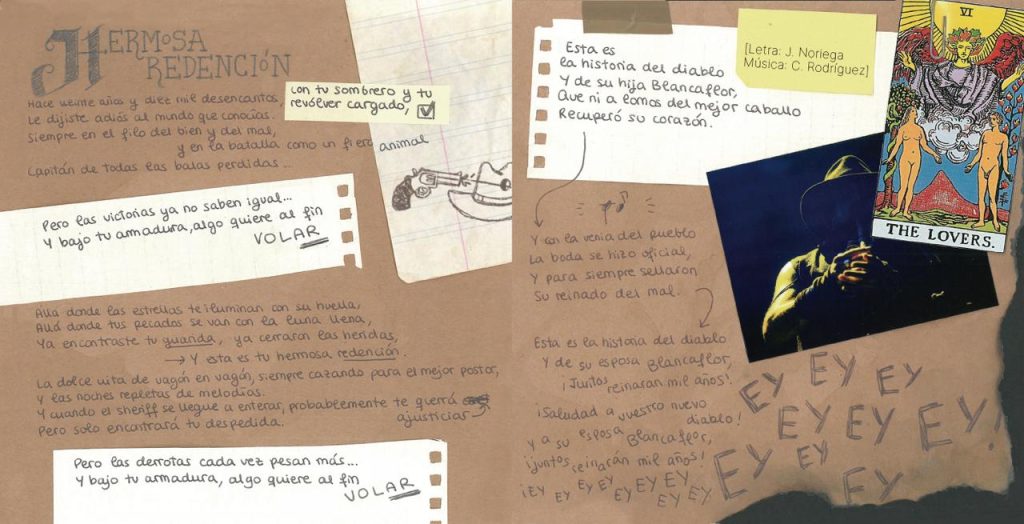 HERMOSA
REDENCIÓN
Hace veinte años y diez mil desencantos,
con tu sombrero y tu
revólver cargado,
Le dijiste adiós al mundo que conocías.
Siempre en el filo del bien y del mal,
y en la batalla como un fiero animal
Capitán de todas las balas perdidas...
Pero las victorias ya no saben igual...
Y bajo tu armadura, algo quiere al fin
VOLAR
Allá donde las estrellas te iluminan con su huella,
Allá donde tus pecados se van con la luna llena,
Ya encontraste tu guarida, ya cerraran las heridas,
→ Y esta es tu hermosa redención.
La dolce vita de vagón en vagón, siempre cazando para el mejor postor,
Y las noches repletas de melodías.
Y cuando el sheriff se llegue a enterar, probablemente te querrá
ajusticiar
Pero solo encontrará tu despedida.
Pero las derrotas cada vez pesan más...
Y bajo tu armadura, algo quiere al fin
VOLAR
Esta es
la historia del diablo
Y de su hija Blancaflor,
Que ni a lomos del mejor caballo
Recuperó su corazón.
[Letra: J. Noriega
Música: C. Rodríguez]
VI
THE LOVERS.
Y con la venia del pueblo
La boda se hizo oficial,
Y para siempre sellaron
Su reinado del mal.
Esta es la historia del diablo
Y de su esposa Blancaflor,
¡Juntos reinaran mil años!
¡Saludad a vuestro nuevo
diablo!
Y a su esposa Blancaflor,
¡juntos reinarán mil años!
¡EY EY EY EY EY EY EY EY EY
EY EY EY
EY EY EY EY!
EY EY EY